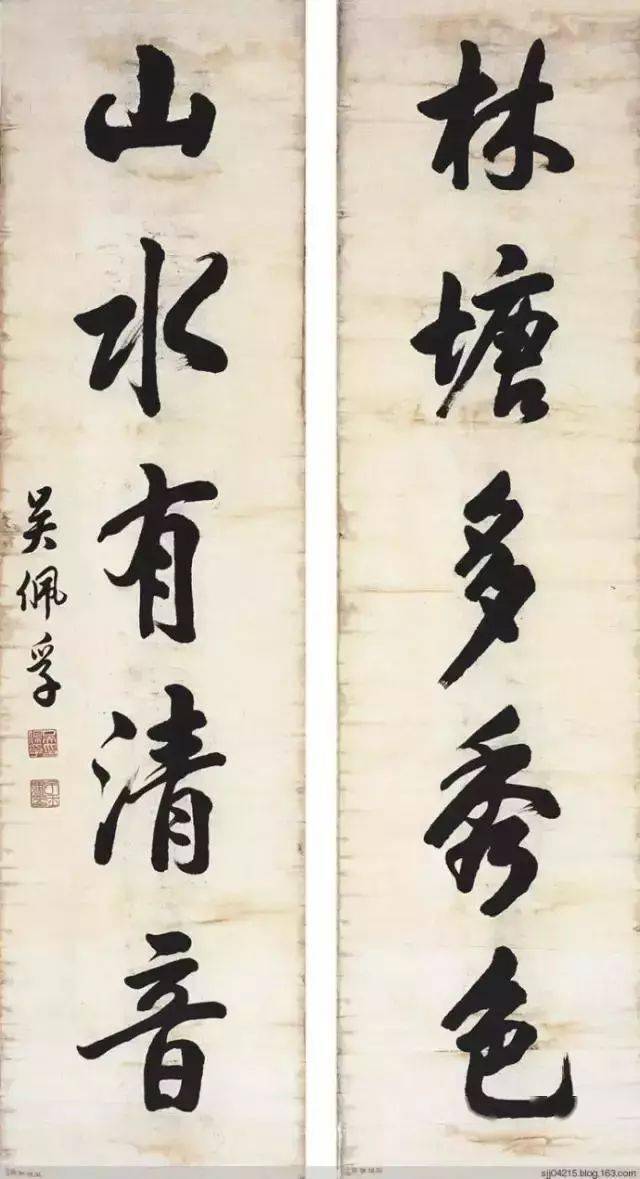 林塘多秀色
山水有清音
吴佩孚
sjj04215.blog.163.com